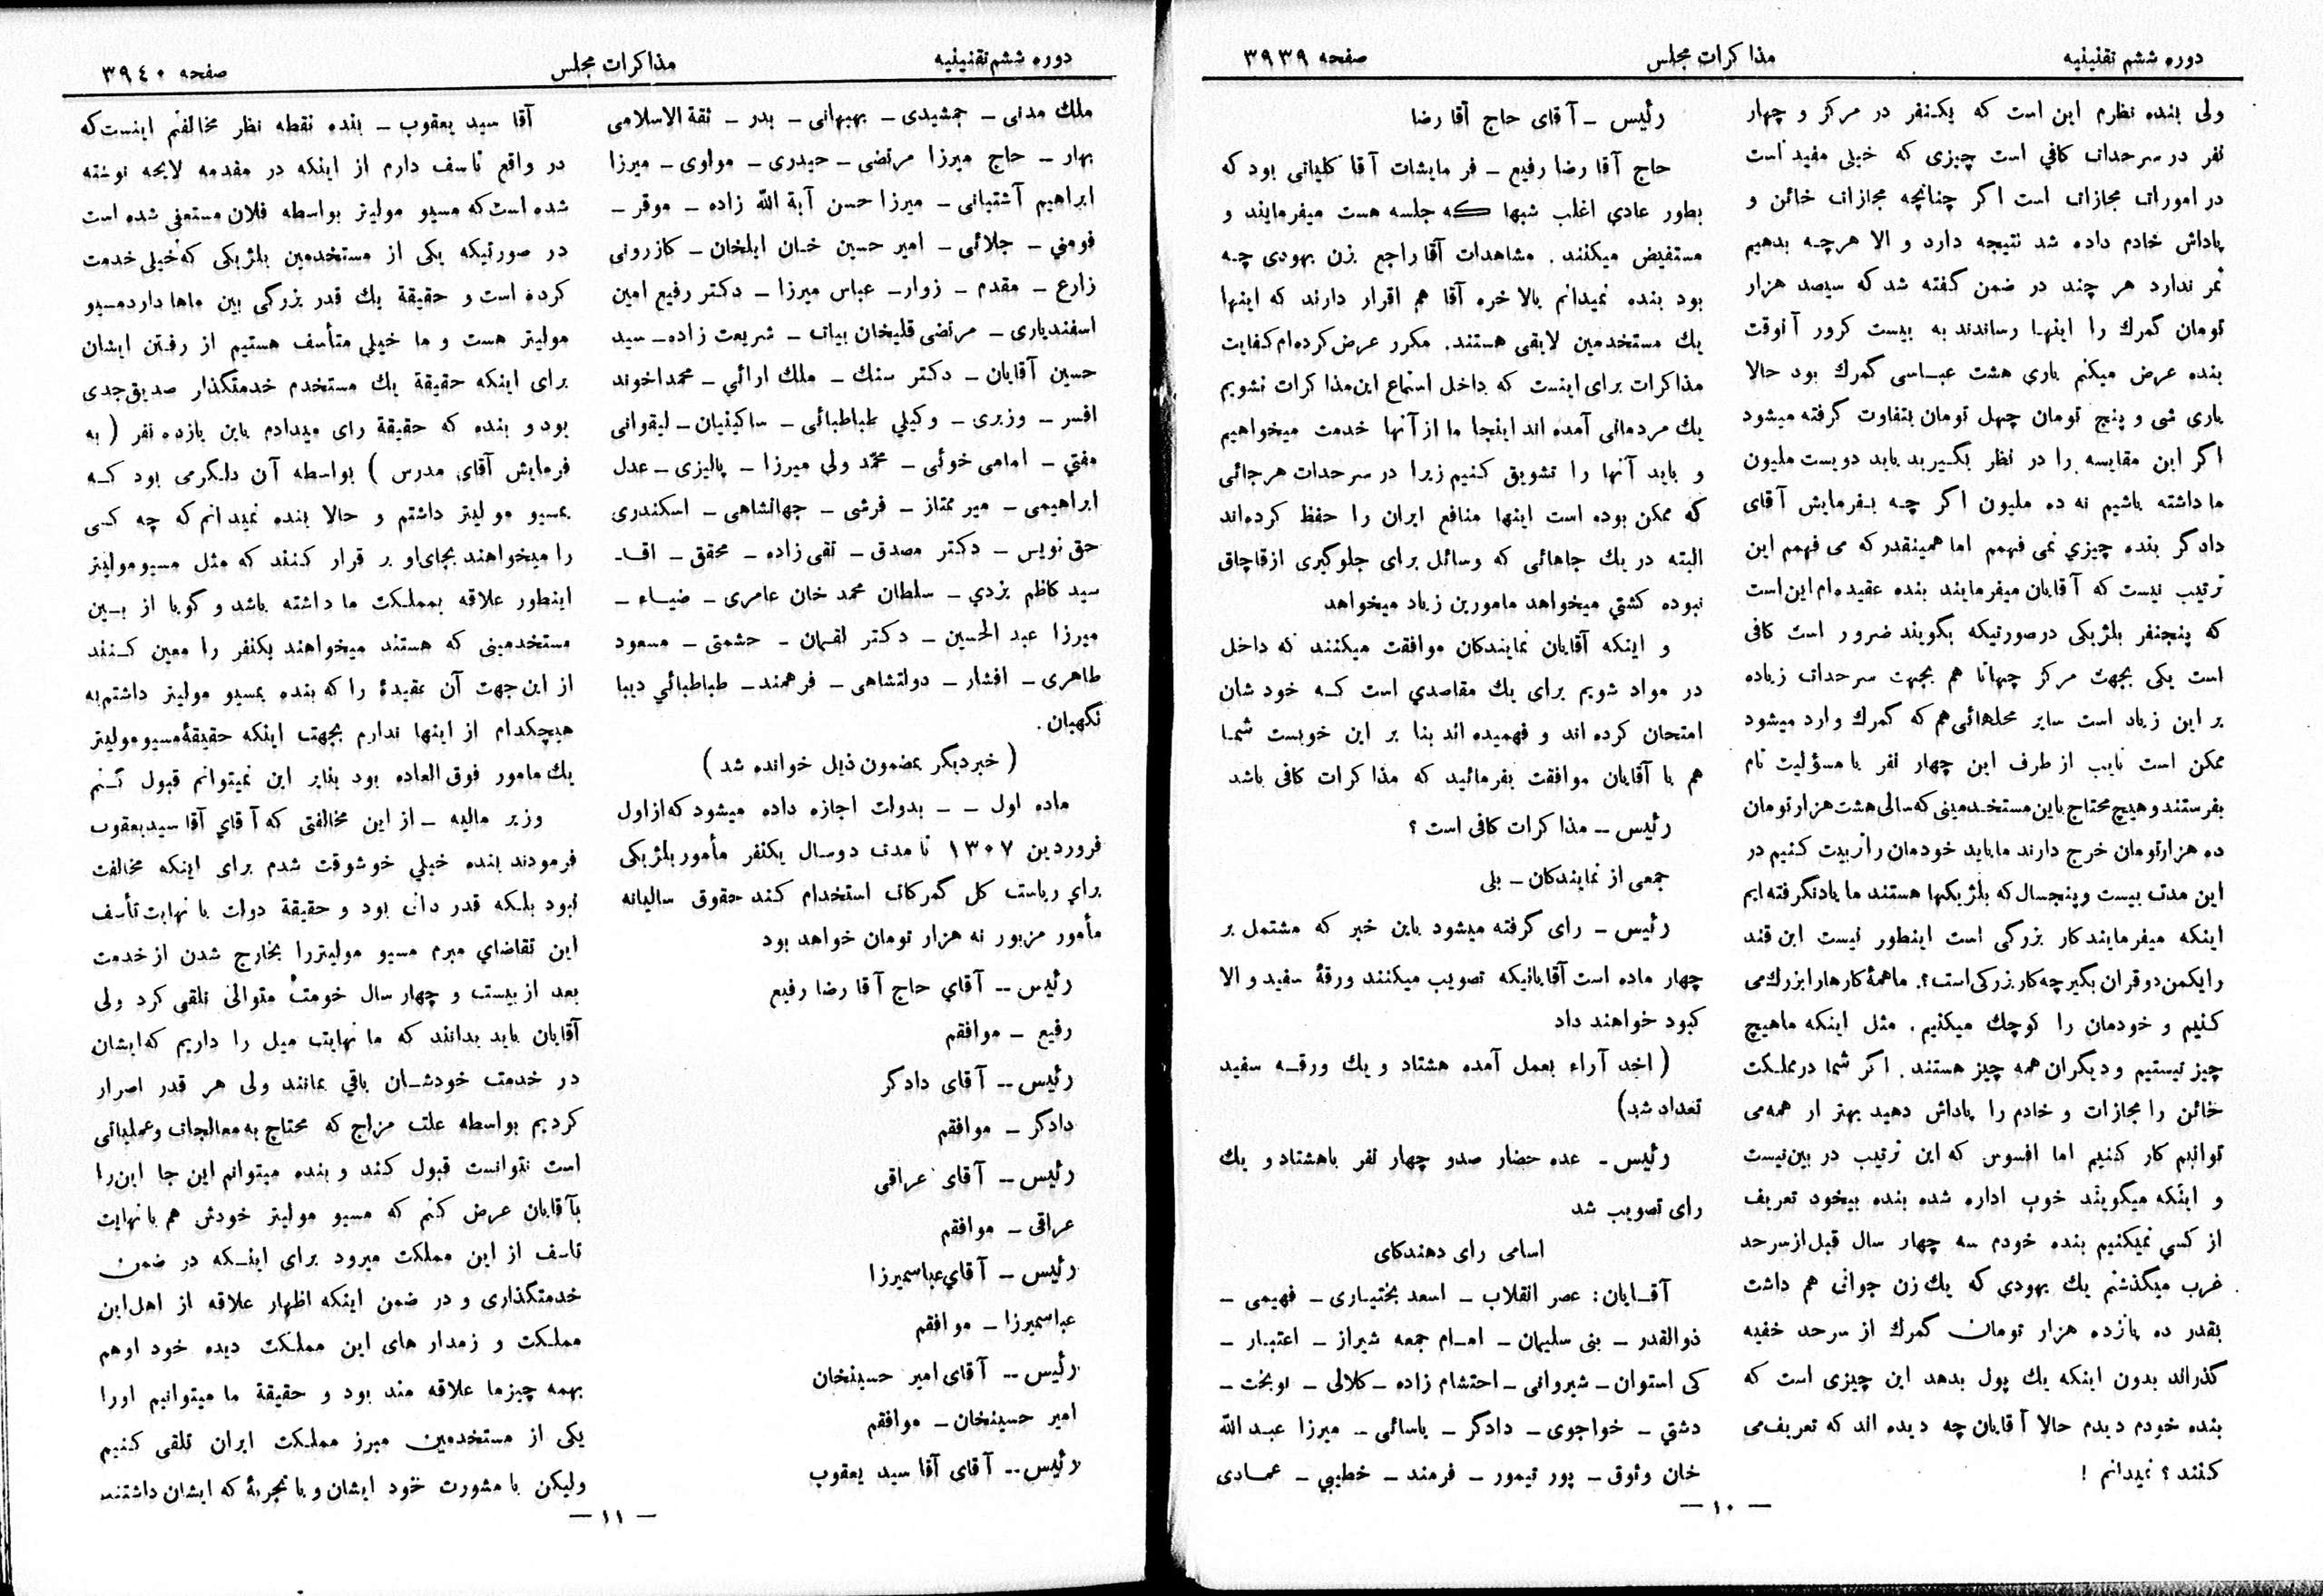 دوره ششم تقنینیه
مذاکرات مجلس
صفحه ۳۹۳۹
ولی بنده نظرم این است که یکنفر در مرکز و چهار
نفر در سرحدات کافی است چیزی که خیلی مفید است
در امورات مجازات است اگر چنانچه مجازات خائن و
پاداش خادم داده شد نتیجه دارد و الا هرچه بدهیم
ثمر ندارد هر چند در ضمن گفته شد که سیصد هزار
تومان گمرك را اینها رساندند به بیست کرور آنوقت
بنده عرض میکنم باری هشت عباسی گمرك بود حالا
باری سی و پنج تومان چهل تومان بتفاوت گرفته میشود
اگر این مقایسه را در نظر بگیرید باید دویست ملیون
ما داشته باشیم نه ده ملیون اگر چه بفرمایش آقای
دادگر بنده چیزي نمی فهمم اما همینقدر که می فهمم این
ترتیب نیست که آقایان میفرمایند بنده عقیده‌ام این است
که پنجنفر بلژیکی درصورتیکه بگویند ضرور است کافی
است یکی بجهت مرکز چهارتا هم بجهت سرحدات زیاده
بر این زیاد است سایر محلهائی هم که گمرك وارد میشود
ممکن است نایب از طرف این چهار نفر با مسؤلیت تام
بفرستند و هیچ محتاج باین مستخدمینی که سالی هشت هزار تومان
ده هزارتومان خرج دارند ما باید خودمان را تربیت کنیم در
این مدت بیست و پنجسال که بلژیکیها هستند ما یادنگرفته ایم
اینکه میفرمایند کار بزرگی است اینطور نیست این قند
را یکمن دو قران بگیر چه کار بزرکی است؟. ما همۀ کارهارا بزرك می
کنیم و خودمان را کوچك میکنیم. مثل اینکه ما هیچ
چیز نیستیم و دیگران همه چیز هستند. اگر شما در مملکت
خائن را مجازات و خادم را پاداش دهید بهتر از همه می
توانیم کار کنیم اما افسوس که این ترتیب در بین نیست
و اینکه میگویند خوب اداره شده بنده بیخود تعریف
از کسی نمیکنیم بنده خودم سه چهار سال قبل از سرحد
غرب میگذشتم یك یهودی که یك زن جوانی هم داشت
بقدر ده پازده هزار تومان گمرك از سرحد خفیه
گذراند بدون اینکه یك پول بدهد این چیزی است که
بنده خودم دیدم حالا آقایان چه دیده اند که تعریف می
کنند؟ نمیدانم!
رئیس ـ آقای حاج آقا رضا
حاج آقا رضا رفیع ـ فرمایشات آقا کلیاتی بود که
بطور عادي اغلب شبها که جلسه هست میفرمایند و
مستفیض میکنند. مشاهدات آقا راجع بزن یهودی چه
بود بنده نمیدانم بالاخره آقا هم اقرار دارند که اینها
یك مستخدمین لایقی هستند. مکرر عرض کرده‌ام کفایت
مذاکرات برای اینست که داخل استماع این مذاکرات نشویم
یك مردمانی آمده اند اینجا ما از آنها خدمت میخواهیم
و باید آنها را تشویق کنیم زیرا در سرحدات هرجائی
که ممکن بوده است اینها منافع ایران را حفظ کرده‌اند
البته در یك جاهائی که وسائل برای جلوگیری ازقاچاق
نبوده کشتي میخواهد مامورین زیاد میخواهد
و اینکه آقایان نمایندکان موافقت میکنند که داخل
در مواد شویم برای یك مقاصدي است که خودشان
امتحان کرده اند و فهمیده اند بنا بر این خوبست شما
هم با آقایان موافقت بفرمائید که مذاکرات کافی باشد
رئیس ـ مذاکرات کافی است؟
جمعی از نمایندکان ـ بلی
رئیس ـ رای گرفته میشود باین خبر که مشتمل بر
چهار ماده است آقایانیکه تصویب میکنند ورقۀ سفید و الا
کبود خواهند داد
(اخذ آراء بعمل آمده هشتاد و یك ورقه سفید
تعداد شد)
رئیس ـ عده حضار صدو چهار نفر باهشتاد و یك
رای تصویب شد
اسامی رای دهندکای
آقایان: عصر انقلاب ـ اسعد بختیاری ـ فهیمی ـ
ذوالقدر ـ بنی سلیمان ـ امام جمعه شیراز ـ اعتبار ـ
کی استوان ـ شیروانی ـ احتشام زاده ـ کلالی ـ نوبخت ـ
دشتي ـ خواجوی ـ دادگر ـ یاسائی ـ میرزا عبدالله
خان وثوق ـ پور تیمور ـ فرمند ـ خطیبي ـ عمادی
— ۱۰ —
دوره ششم تقنینیه
مذاکرات مجلس
صفحه ۳۹٤۰
ملك مدنی ـ جمشیدی ـ بهبهانی ـ بدر ـ ثقة الاسلامی
بهار ـ حاج میرزا مرتضی ـ حیدری ـ مولوی ـ میرزا
ابراهیم آشتیانی ـ میرزا حسن آیة الله زاده ـ موقر ـ
فومني ـ جلائی ـ امیر حسین خان ایلخان ـ کازرونی
زارع ـ مقدم ـ زوار ـ عباس میرزا ـ دکتر رفیع امین
اسفندیاری ـ مرتضی قلیخان بیات ـ شریعت زاده ـ سید
حسین آقایان ـ دکتر سنك ـ ملك ارائي ـ محمد اخوند
افسر ـ وزیری ـ وکیلي طباطبائی ـ ساکینیان ـ لیقوانی
مفتي ـ امامی خوئی ـ محمد ولی میرزا ـ پالیزی ـ عدل
ابراهیمی ـ میر ممتاز ـ فرشی ـ جهانشاهی ـ اسکندری
حق نویس ـ دکتر مصدق ـ تقی زاده ـ محقق ـ اقا ـ
سید کاظم یزدي ـ سلطان محمد خان عامری ـ ضیاء ـ
میرزا عبد الحسین ـ دکتر لقمان ـ حشمتی ـ مسعود
طاهری ـ افشار ـ دولتشاهی ـ فرهمند ـ طباطبائي دیبا
نگهبان.
(خبر دیگر بمضمون ذیل خوانده شد)
ماده اول ــ بدولت اجازه داده میشود که از اول
فروردین ۱۳۰۷ تا مدت دوسال یکنفر مأمور بلژیکی
براي ریاست کل گمرکات استخدام کند حقوق سالیانه
مأمور مزبور نه هزار تومان خواهد بود
رئیس ـ آقاي حاج آقا رضا رفیع
رفیع ـ موافقم
رئیس ـ آقای دادگر
دادگر ـ موافقم
رئیس ـ آقای عراقی
عراقی ـ موافقم
رئیس ـ آقاي عباسمیرزا
عباسمیرزا ـ موافقم
رئیس ـ آقای امیر حسینخان
امیر حسینخان ـ موافقم
رئیس ـ آقای آقا سید یعقوب
آقا سید یعقوب ـ بنده نقطه نظر مخالفتم اینست که
در واقع تاسف دارم از اینکه در مقدمه لایحه نوشته
شده است که مسیو مولیتر بواسطه فلان مستعفی شده است
در صورتیکه یکی از مستخدمین بلژیکی که خیلی خدمت
کرده است و حقیقة یك قدر بزرگی بین ماها دارد مسیو
مولیتر هست و ما خیلي متأسف هستیم از رفتن ایشان
برای اینکه حقیقة یك مستخدم خدمتگذار صدیق جدی
بود و بنده که حقیقة رای میدادم باین یازده نفر (به
فرمایش آقای مدرس) بواسطه آن دلگرمی بود که
بمسیو مولیتر داشتم و حالا بنده نمیدانم که چه کسی
را میخواهند بجای او بر قرار کنند که مثل مسیو مولیتر
اینطور علاقه بمملکت ما داشته باشد و گویا از بین
مستخدمینی که هستند میخواهند یکنفر را معین کنند
از این جهت آن عقیدۀ را که بنده بمسیو مولیتر داشتم به
هیچکدام از اینها ندارم بجهت اینکه حقیقۀ مسیو مولیتر
یك مامور فوق العاده بود بنابر این نمیتوانم قبول کنم
وزیر مالیه ـ از این مخالفتی که آقاي آقا سید یعقوب
فرمودند بنده خیلي خوشوقت شدم برای اینکه مخالفت
نبود بلکه قدر دانی بود و حقیقة دولت با نهایت تأسف
این تقاضاي مبرم مسیو مولیتررا بخارج شدن از خدمت
بعد از بیست و چهار سال خومت متوالی تلقی کرد ولی
آقایان باید بدانند که ما نهایت میل را داریم که ایشان
در خدمت خودشان باقي بمانند ولی هر قدر اصرار
کردیم بواسطه علت مزاج که محتاج به معالجات و عملیاتی
است نتوانست قبول کند و بنده میتوانم این جا این را
بآقایان عرض کنم که مسیو مولیتر خودش هم با نهایت
تاسف از این مملکت میرود برای اینکه در ضمن
خدمتگذاری و در ضمن اینکه اظهار علاقه از اهل این
مملکت و زمدار های این مملکت دیده خود اوهم
بهمه چیزما علاقه مند بود و حقیقة ما میتوانیم اورا
یکی از مستخدمین مبرز مملکت ایران تلقی کنیم
ولیکن با مشورت خود ایشان و با تجربۀ که ایشان داشتند
— ۱۱ —